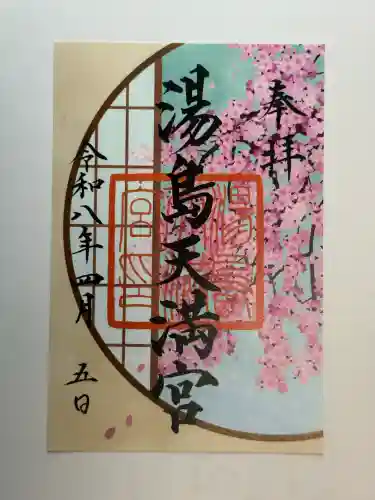 奉拝
湯島天満宮
令和八年四月五日